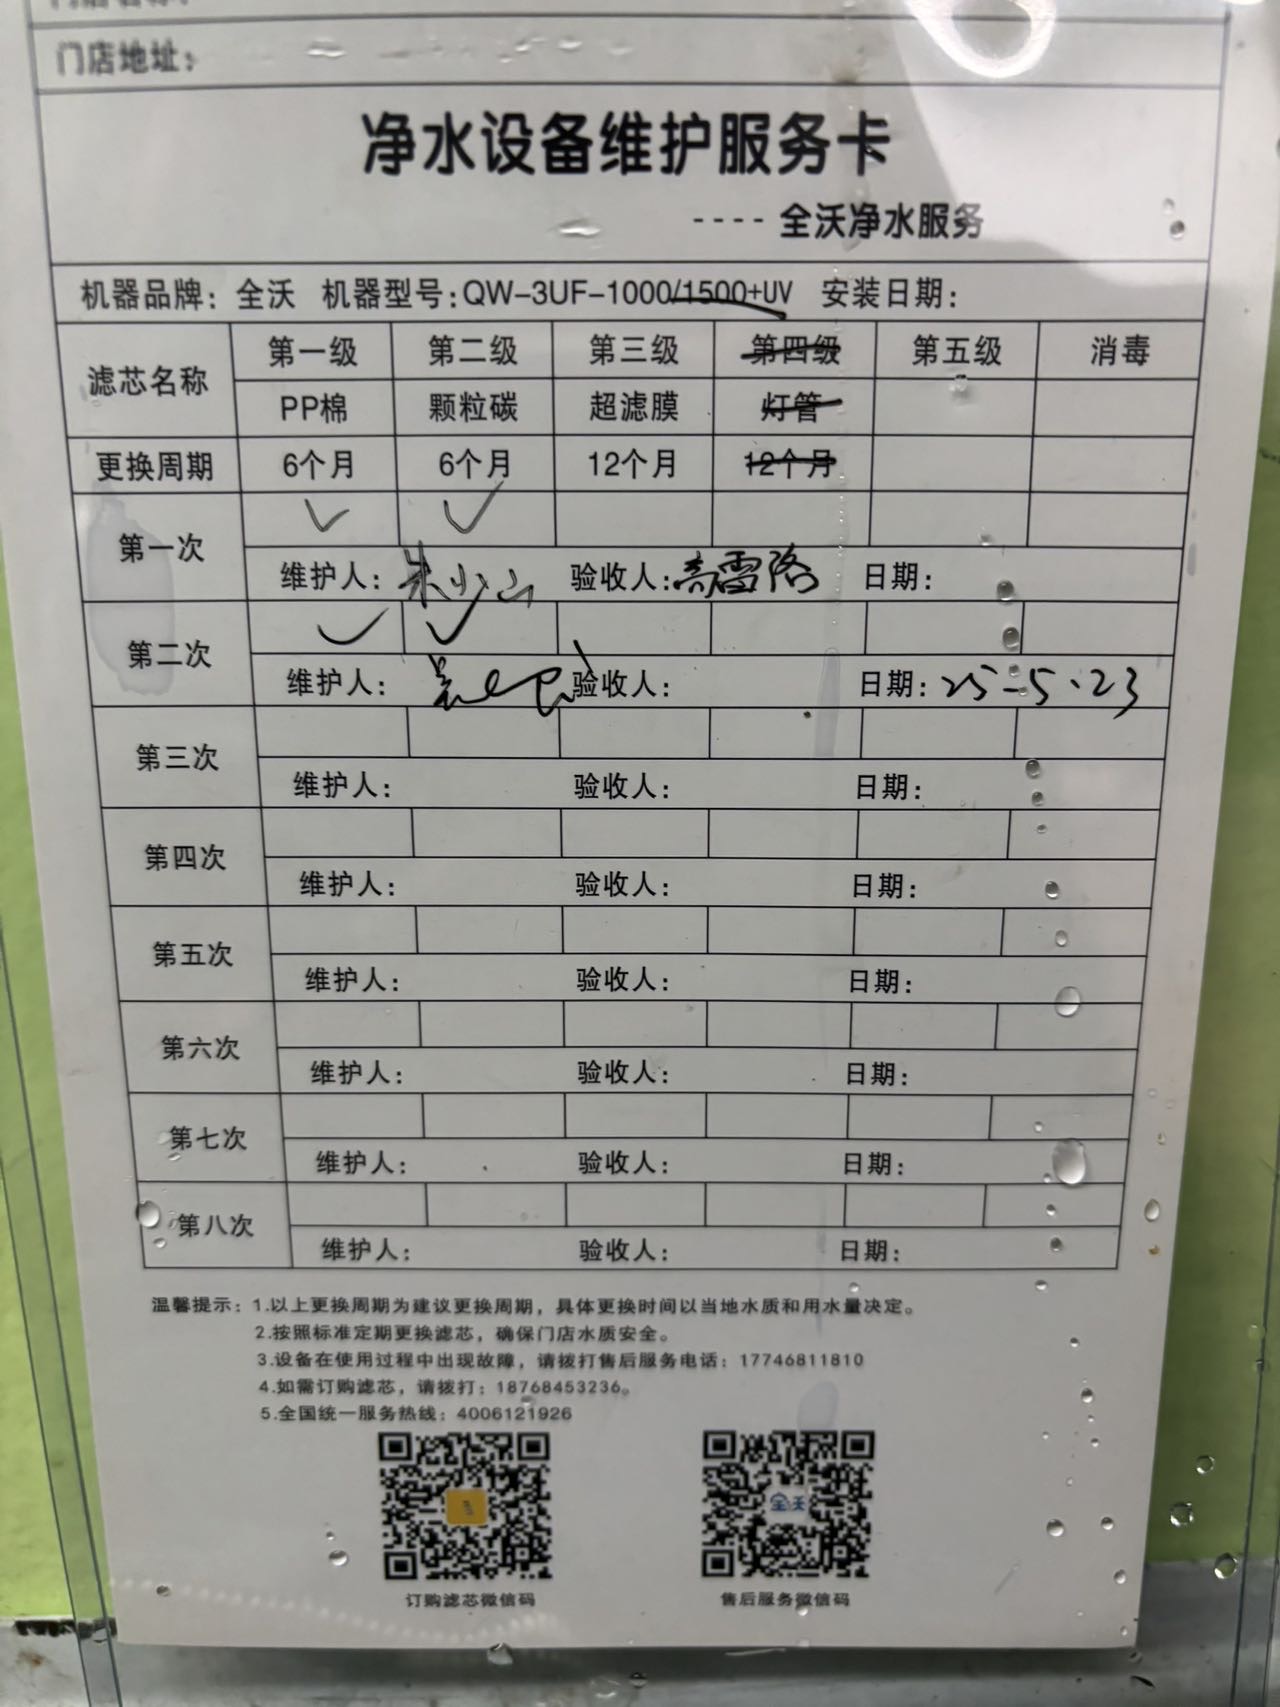 门店地址：
净水设备维护服务卡
---- 全沃净水服务
机器品牌：全沃 机器型号:QW-3UF-1000/1500+UV 安装日期：
滤芯名称 第一级 第二级 第三级 第四级 第五级 消毒
PP棉 颗粒碳 超滤膜 灯管
更换周期 6个月 6个月 12个月 12个月
第一次 ✓ ✓
维护人：朱少山 验收人： 日期：
第二次 ✓ ✓
维护人： 验收人： 日期：25-5.23
第三次
维护人： 验收人： 日期：
第四次
维护人： 验收人： 日期：
第五次
维护人： 验收人： 日期：
第六次
维护人： 验收人： 日期：
第七次
维护人： 验收人： 日期：
第八次
维护人： 验收人： 日期：
温馨提示：1.以上更换周期为建议更换周期，具体更换时间以当地水质和用水量决定。
2.按照标准定期更换滤芯，确保门店水质安全。
3.设备在使用过程中出现故障，请拨打售后服务电话：17746811810
4.如需订购滤芯，请拨打：18768453236。
5.全国统一服务热线：4006121926
全沃
订购滤芯微信码 售后服务微信码